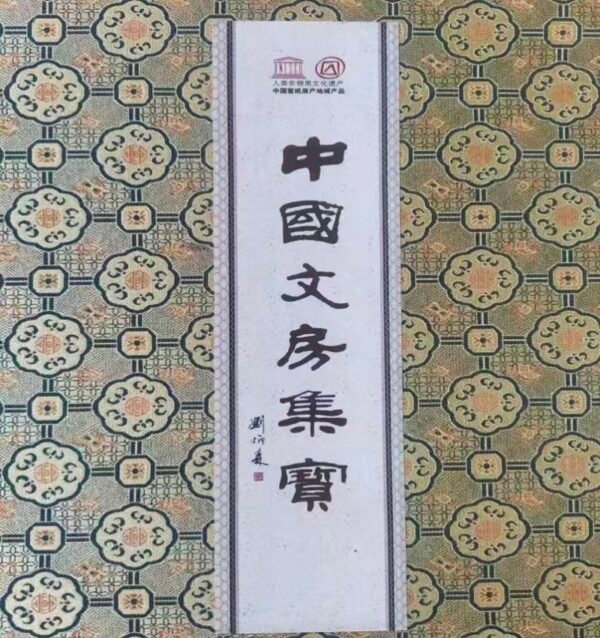 人类非物质文化遗产
中国宣纸原产地域产品
中國文房集寶
劉炳森